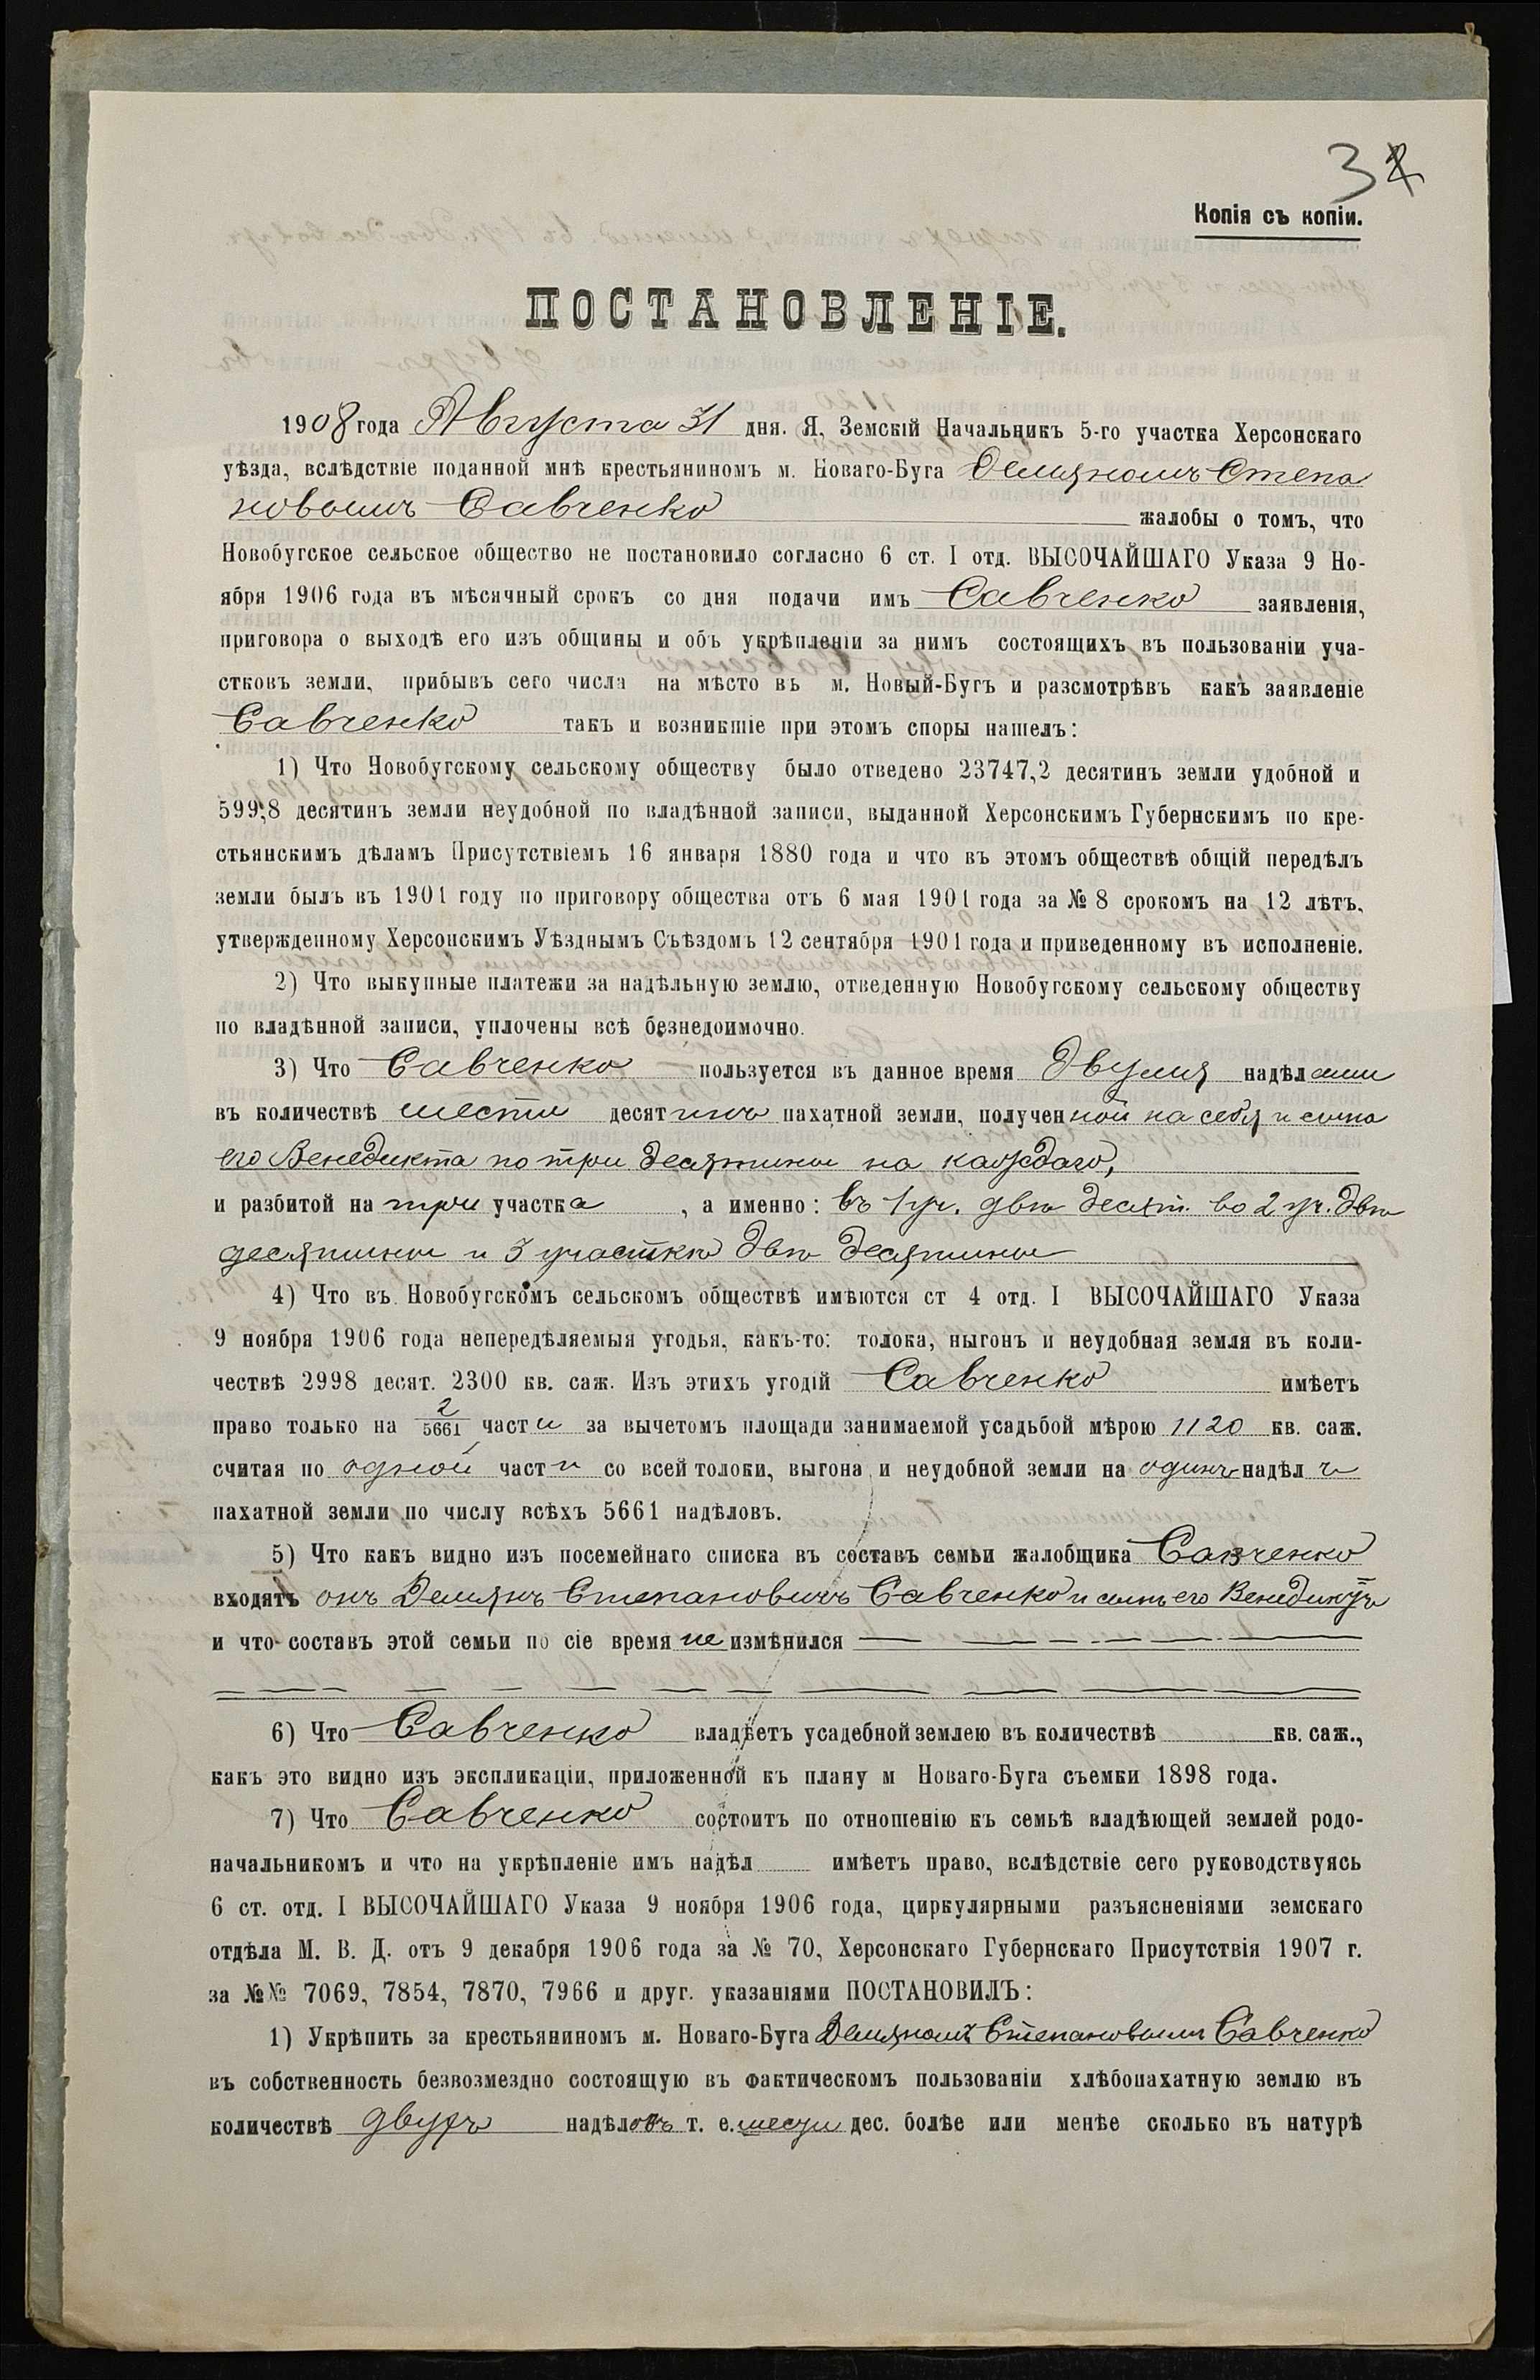 3
Копія съ копіи.
ПОСТАНОВЛЕНІЕ.
1908 года Августа 31 дня. Я, Земскій Начальникъ 5-го участка Херсонскаго
уѣзда, вслѣдствіе поданной мнѣ крестьяниномъ м. Новаго-Буга Демяномъ Степа
новымъ Савченко жалобы о томъ, что
Новобугское сельское общество не постановило согласно 6 ст. I отд. ВЫСОЧАЙШАГО Указа 9 Но-
ября 1906 года въ мѣсячный срокъ со дня подачи имъ Савченко заявленія,
приговора о выходѣ его изъ общины и объ укрѣпленіи за нимъ состоящихъ въ пользованіи уча-
стковъ земли, прибывъ сего числа на мѣсто въ м. Новый-Бугъ и разсмотрѣвъ какъ заявленіе
Савченко такъ и возникшіе при этомъ споры нашелъ:
1) Что Новобугскому сельскому обществу было отведено 23747,2 десятинъ земли удобной и
599,8 десятинъ земли неудобной по владѣнной записи, выданной Херсонскимъ Губернскимъ по кре-
стьянскимъ дѣламъ Присутствіемъ 16 января 1880 года и что въ этомъ обществѣ общій передѣлъ
земли былъ въ 1901 году по приговору общества отъ 6 мая 1901 года за № 8 срокомъ на 12 лѣтъ,
утвержденному Херсонскимъ Уѣзднымъ Съѣздомъ 12 сентября 1901 года и приведенному въ исполненіе.
2) Что выкупные платежи за надѣльную землю, отведенную Новобугскому сельскому обществу
по владѣнной записи, уплочены всѣ безнедоимочно.
3) Что Савченко пользуется въ данное время двумя надѣлами
въ количествѣ шести десятинъ пахатной земли, полученной на себя и сына
его Венедикта по три десятины на каждаго,
и разбитой на три участка , а именно: въ 1 уч. двѣ десят. во 2 уч. двѣ
десятины и 3 участкѣ двѣ десятины
4) Что въ Новобугскомъ сельскомъ обществѣ имѣются ст 4 отд. I ВЫСОЧАЙШАГО Указа
9 ноября 1906 года непередѣляемыя угодья, какъ-то: толока, выгонъ и неудобная земля въ коли-
чествѣ 2998 десят. 2300 кв. саж. Изъ этихъ угодій Савченко имѣетъ
право только на 2/5661 части за вычетомъ площади занимаемой усадьбой мѣрою 1120 кв. саж.
считая по одной части со всей толоки, выгона и неудобной земли на одинъ надѣлъ
пахатной земли по числу всѣхъ 5661 надѣловъ.
5) Что какъ видно изъ посемейнаго списка въ составъ семьи жалобщика Савченко
входятъ онъ Демянъ Степановичъ Савченко и сынъ его Венедиктъ
и что составъ этой семьи по сіе время не измѣнился
6) Что Савченко владѣетъ усадебной землею въ количествѣ кв. саж.,
какъ это видно изъ экспликаціи, приложенной къ плану м Новаго-Буга съемки 1898 года.
7) Что Савченко состоитъ по отношенію къ семьѣ владѣющей землей родо-
начальникомъ и что на укрѣпленіе имъ надѣл имѣетъ право, вслѣдствіе сего руководствуясь
6 ст. отд. I ВЫСОЧАЙШАГО Указа 9 ноября 1906 года, циркулярными разъясненіями земскаго
отдѣла М. В. Д. отъ 9 декабря 1906 года за № 70, Херсонскаго Губернскаго Присутствія 1907 г.
за №№ 7069, 7854, 7870, 7966 и друг. указаніями ПОСТАНОВИЛЪ:
1) Укрѣпить за крестьяниномъ м. Новаго-Буга Демяномъ Степановымъ Савченко
въ собственность безвозмездно состоящую въ фактическомъ пользованіи хлѣбопахатную землю въ
количествѣ двухъ надѣловъ т. е. шести дес. болѣе или менѣе сколько въ натурѣ